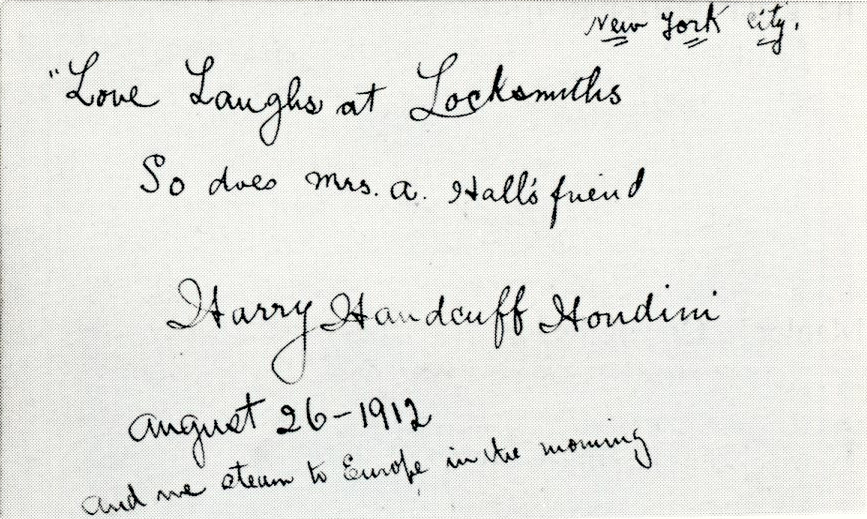 New York City.
"Love Laughs at Locksmiths
So does Mrs. A. Hall's friend
Harry Handcuff Houdini
August 26-1912
and we steam to Europe in the morning